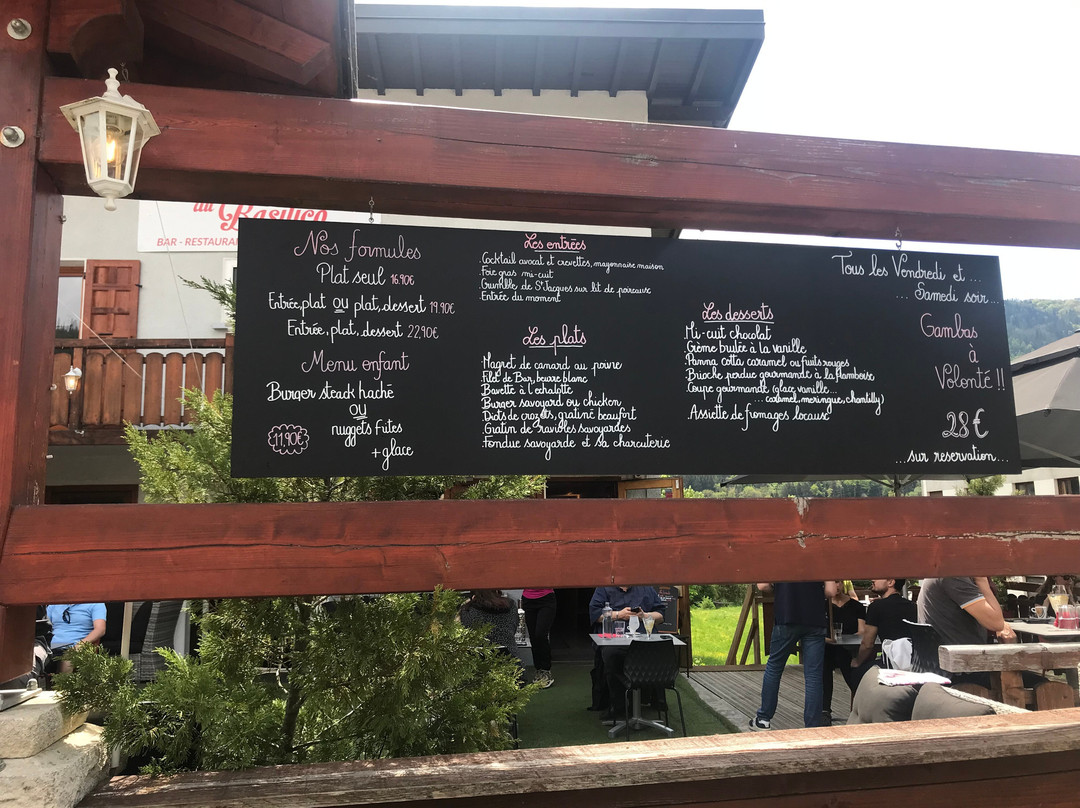 du Basilico
BAR - RESTAURA
Nos formules
Plat seul 16.90€
Entrée, plat ou plat, dessert 19.90€
Entrée, plat, dessert 22,90€
Menu enfant
Burger steack haché
ou
nuggets frites
+ glace
11,90€
Les entrées
.Cocktail avocat et crevettes, mayonnaise maison
.Foie gras mi-cuit
.Crumble de St Jacques sur lit de poireaux
.Entrée du moment
Les plats
.Magret de canard au poivre
.Filet de Bar, beurre blanc
.Bavette à l'échalotte
.Burger savoyard ou chicken
.Diots de crozets, gratiné beaufort
.Gratin de ravioles savoyardes
.Fondue savoyarde et sa charcuterie
Les desserts
.Mi-cuit chocolat
.Crème brulée à la vanille
.Panna cotta caramel ou fruits rouges
.Brioche perdue gourmande à la framboise
.Coupe gourmande (glace vanille...
...caramel, meringue, chantilly)
.Assiette de fromages locaux
Tous les Vendredi et ...
... Samedi soir ...
Gambas
à
Volonté !!
28€
...sur reservation...